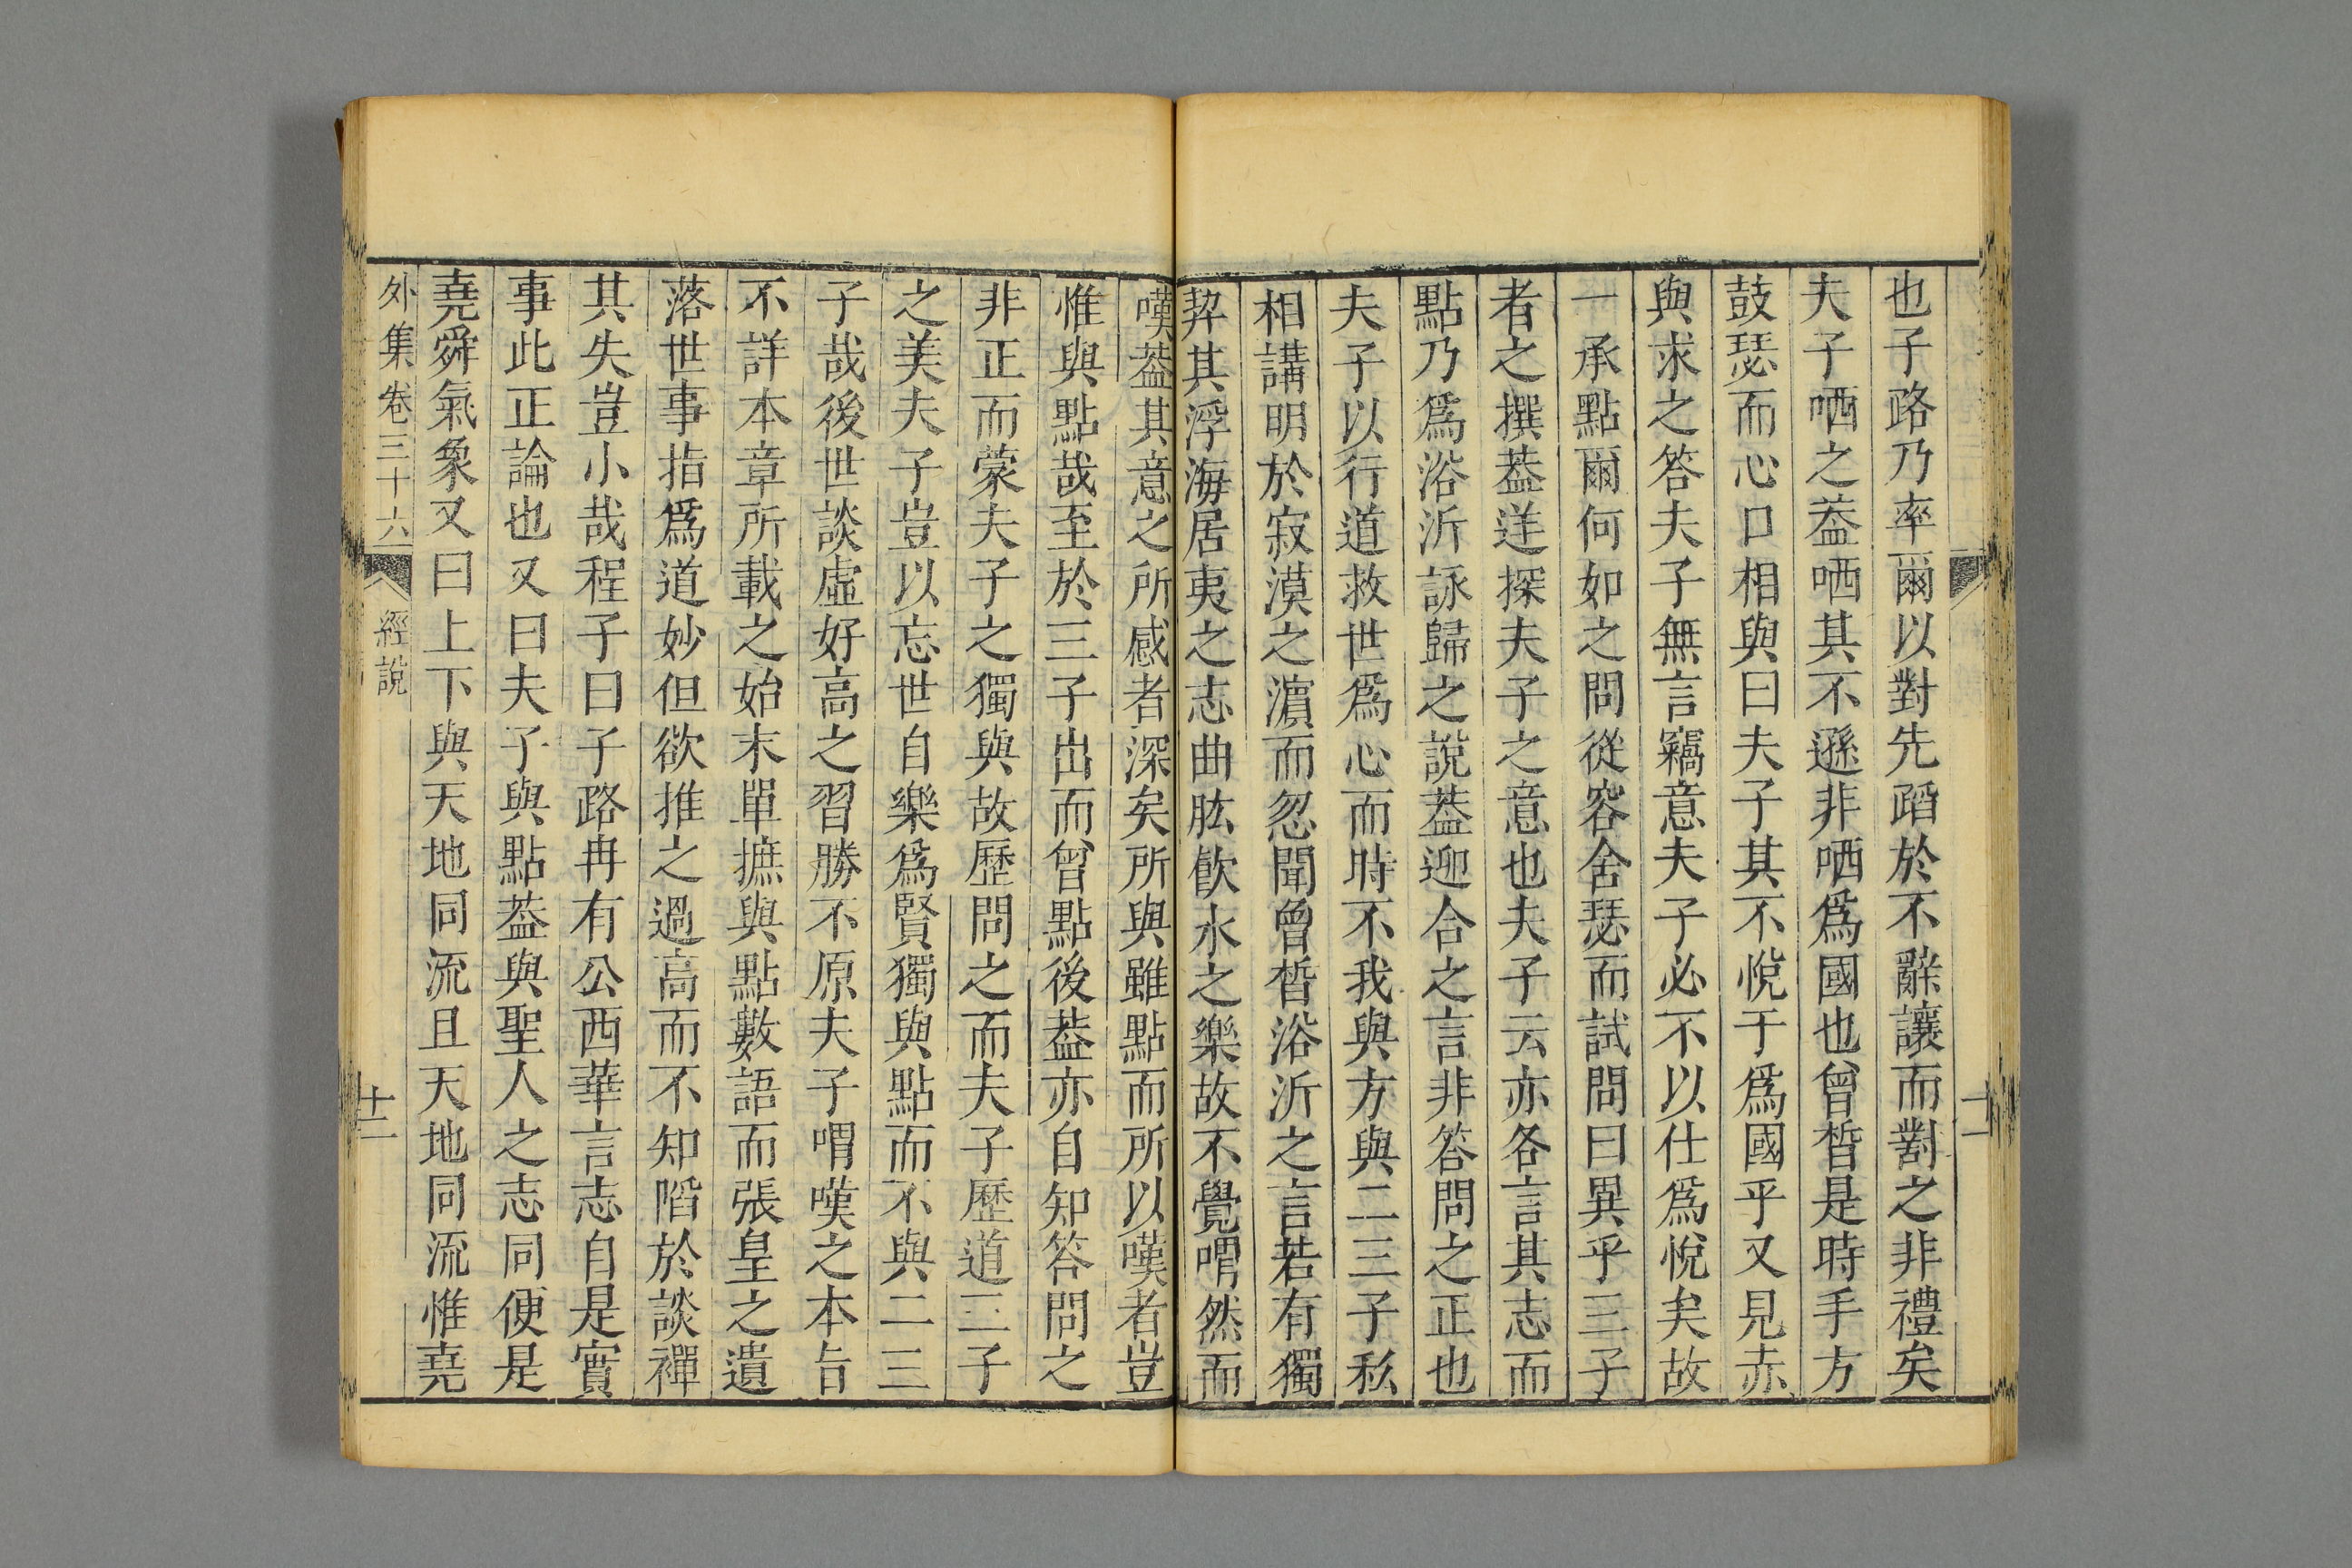 也子路乃率爾以對先蹈於不辭讓而對之非禮矣
夫子哂之葢哂其不遜非哂爲國也曾晳是時手方
鼓瑟而心口相與曰夫子其不悅于爲國乎又見赤
與求之答夫子無言竊意夫子必不以仕爲悅矣故
一承點爾何如之問從容舍瑟而試問曰異乎三子
者之撰葢逆探夫子之意也夫子云亦各言其志而
點乃爲浴沂詠歸之說葢迎合之言非答問之正也
夫子以行道救世爲心而時不我與方與二三子私
相講明於寂漠之濵而忽聞曾晳浴沂之言若有獨
契其浮海居夷之志曲肱飲水之樂故不覺喟然而
嘆葢其意之所感者深矣所與雖點而所以嘆者豈
惟與點哉至於三子出而曾點後葢亦自知答問之
非正而蒙夫子之獨與故歷問之而夫子歷道三子
之美夫子豈以忘世自樂爲賢獨與點而不與二三
子哉後世談虛好高之習勝不原夫子喟嘆之本旨
不詳本章所載之始末單摭與點數語而張皇之遺
落世事指爲道妙但欲推之過高而不知陷於談禪
其失豈小哉程子曰子路冉有公西華言志自是實
事此正論也又曰夫子與點葢與聖人之志同便是
堯舜氣象又曰上下與天地同流且天地同流惟堯
外集卷三十六 經說 十二